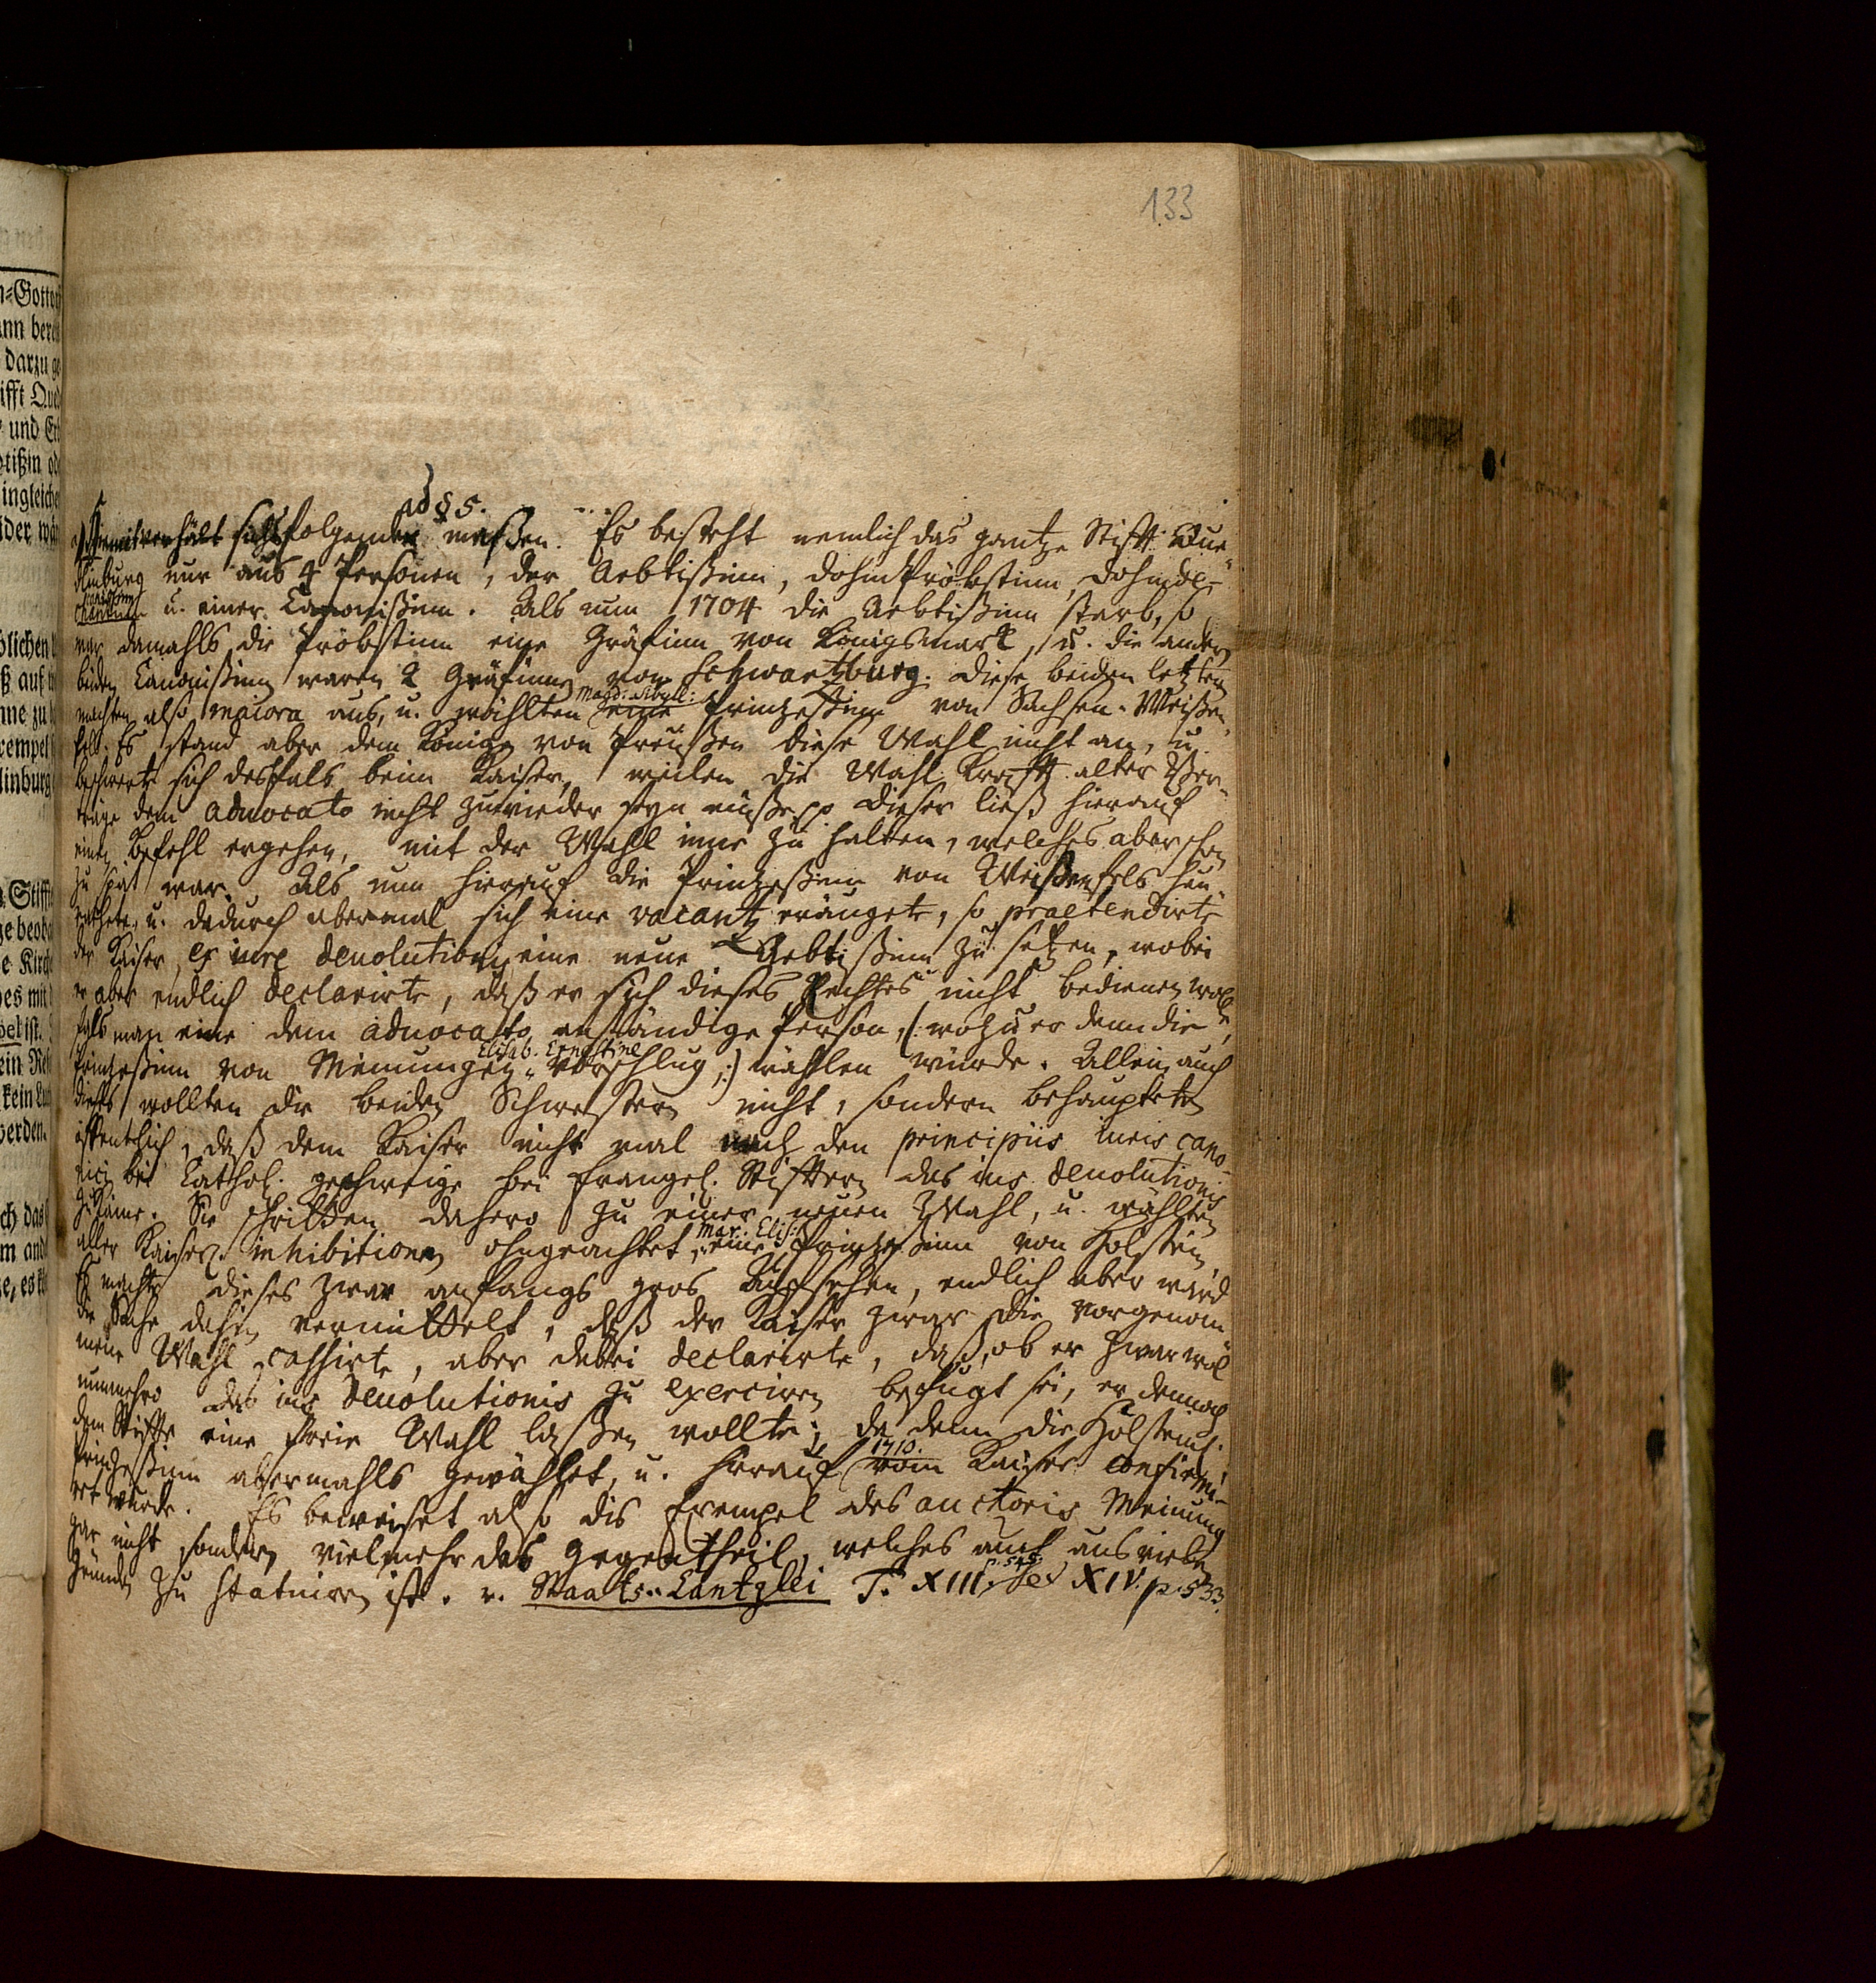 133
ad § 5.
a) Hiemit verhält sichs folgender maßen. Es besteht nemlich das gantze Stifft Qued-
linburg nur aus 4 Personen, der Aebtißinn, Dohm Pröbstinn, Dohmde-
chantinn u. einer Canonißinn. Als nun 1704 die Aebtißinn starb, so
war damahls die Pröbstinn eine Gräfinn von Königsmark, u. die andern
beiden Canonißinn waren 2 Gräfinnen von Schwartzburg. Diese beiden letzten
Magd: Sibyll:
machten also maiora aus, u. wählten eine Prinzeßinn von Sachsen-Weißen-
fels. Es stand aber dem Könige von Preußen diese Wahl nicht an, u.
beschwerte sich desfals beim Kaiser, weilen die Wahl Krafft alter Ver-
träge dem aduocato nicht zuwieder seyn müße. Dieser ließ hierauf
einen Befehl ergehen, mit der Wahl inne zu halten, welches aber schon
zu spät war. Als nun hierauf die Prinzeßinn von Weißenfels heu-
rathete, u. dadurch abermal sich eine vacantz eräugete, so praetendirte
der Kaiser ex iure deuolutionis eine neue Aebtißinn zu setzen, wobei
er aber endlich declarirte, daß er sich dieses Rechtes nicht bedienen wolle,
fals man eine dem aduocato anständige Person, (: wozu er denn die
Elisab. Ernestine
Prinzeßinn von Meinungen vorschlug, :) wählen würde. Allein auch
dieses wollten die beiden Schwestern nicht, sondern behaupteten
öffentlich, daß dem Kaiser nicht mal nach den principiis iuris cano-
nici bei Cathol. geschweige bei Evangel. Stifftern das ius deuolutionis
zukäme. Sie schritten dahero zu einer neuen Wahl, u. wählten
Mar. Elis:
aller Kaiserl. inhibitionen ohngeachtet, eine Prinzeßinn von Holstein,
Es machte dieses zwar anfangs gros Aufsehen, endlich aber ward
die Sache dahin vermittelt, daß der Kaiser zwar die vorgenom-
mene Wahl cassirte, aber dabei declarirte, daß, ob er zwar wol
nunmehro das ius deuolutionis zu exerciren befugt sei, er dennoch
dem Stiffte eine freie Wahl laßen wollte; da denn die Holstein.
1710.
Prinzeßinn abermahls gewählet, u. hierauf vom Kaiser confirmi-
ret wurde. Es beweiset also dis Exempel des auctoris Meinung
gar nicht sondern vielmehr das Gegentheil, welches auch aus vielen
p. 545.
Gründen zu statuiren ist. v. Staats-Cantzlei T. XIII, XIV. p. 533.